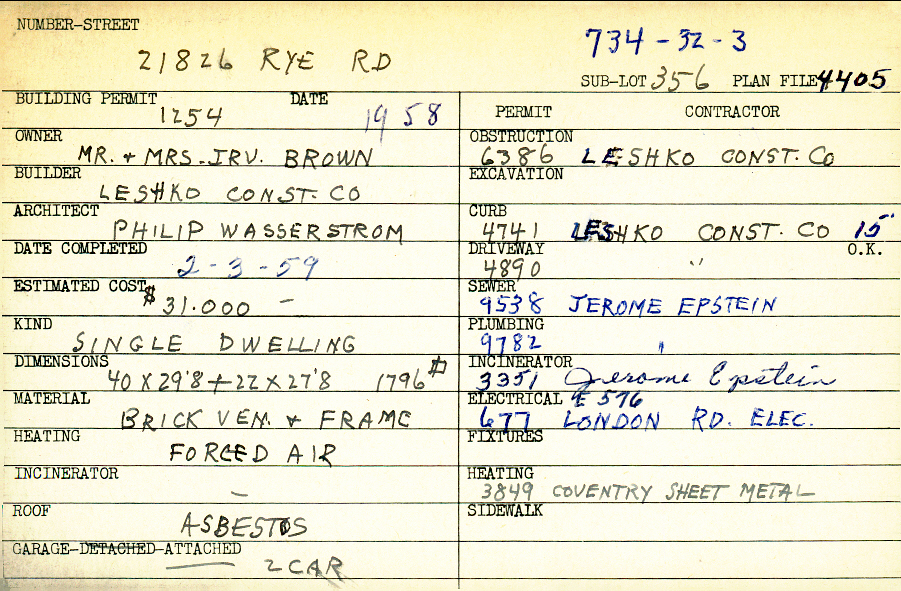 NUMBER-STREET
21826 RYE RD
734-32-3
SUB-LOT 356 PLAN FILE 4405
BUILDING PERMIT DATE
1254 1958
OWNER
MR. + MRS. IRV. BROWN
BUILDER
LESHKO CONST. CO
ARCHITECT
PHILIP WASSERSTROM
DATE COMPLETED
2-3-59
ESTIMATED COST
$31.000 -
KIND
SINGLE DWELLING
DIMENSIONS
40 X 29'8 + 22 X 27'8 1796 #
MATERIAL
BRICK VEN. + FRAME
HEATING
FORCED AIR
INCINERATOR
-
ROOF
ASBESTOS
GARAGE-DETACHED-ATTACHED
2 CAR
PERMIT CONTRACTOR
OBSTRUCTION
6386 LESHKO CONST. CO
EXCAVATION
CURB
4741 LESHKO CONST. CO 15'
DRIVEWAY O.K.
4890 "
SEWER
9538 JEROME EPSTEIN
PLUMBING
9782 "
INCINERATOR
3351 Jerome Epstein
ELECTRICAL E 576
677 LONDON RD. ELEC.
FIXTURES
HEATING
3849 COVENTRY SHEET METAL
SIDEWALK